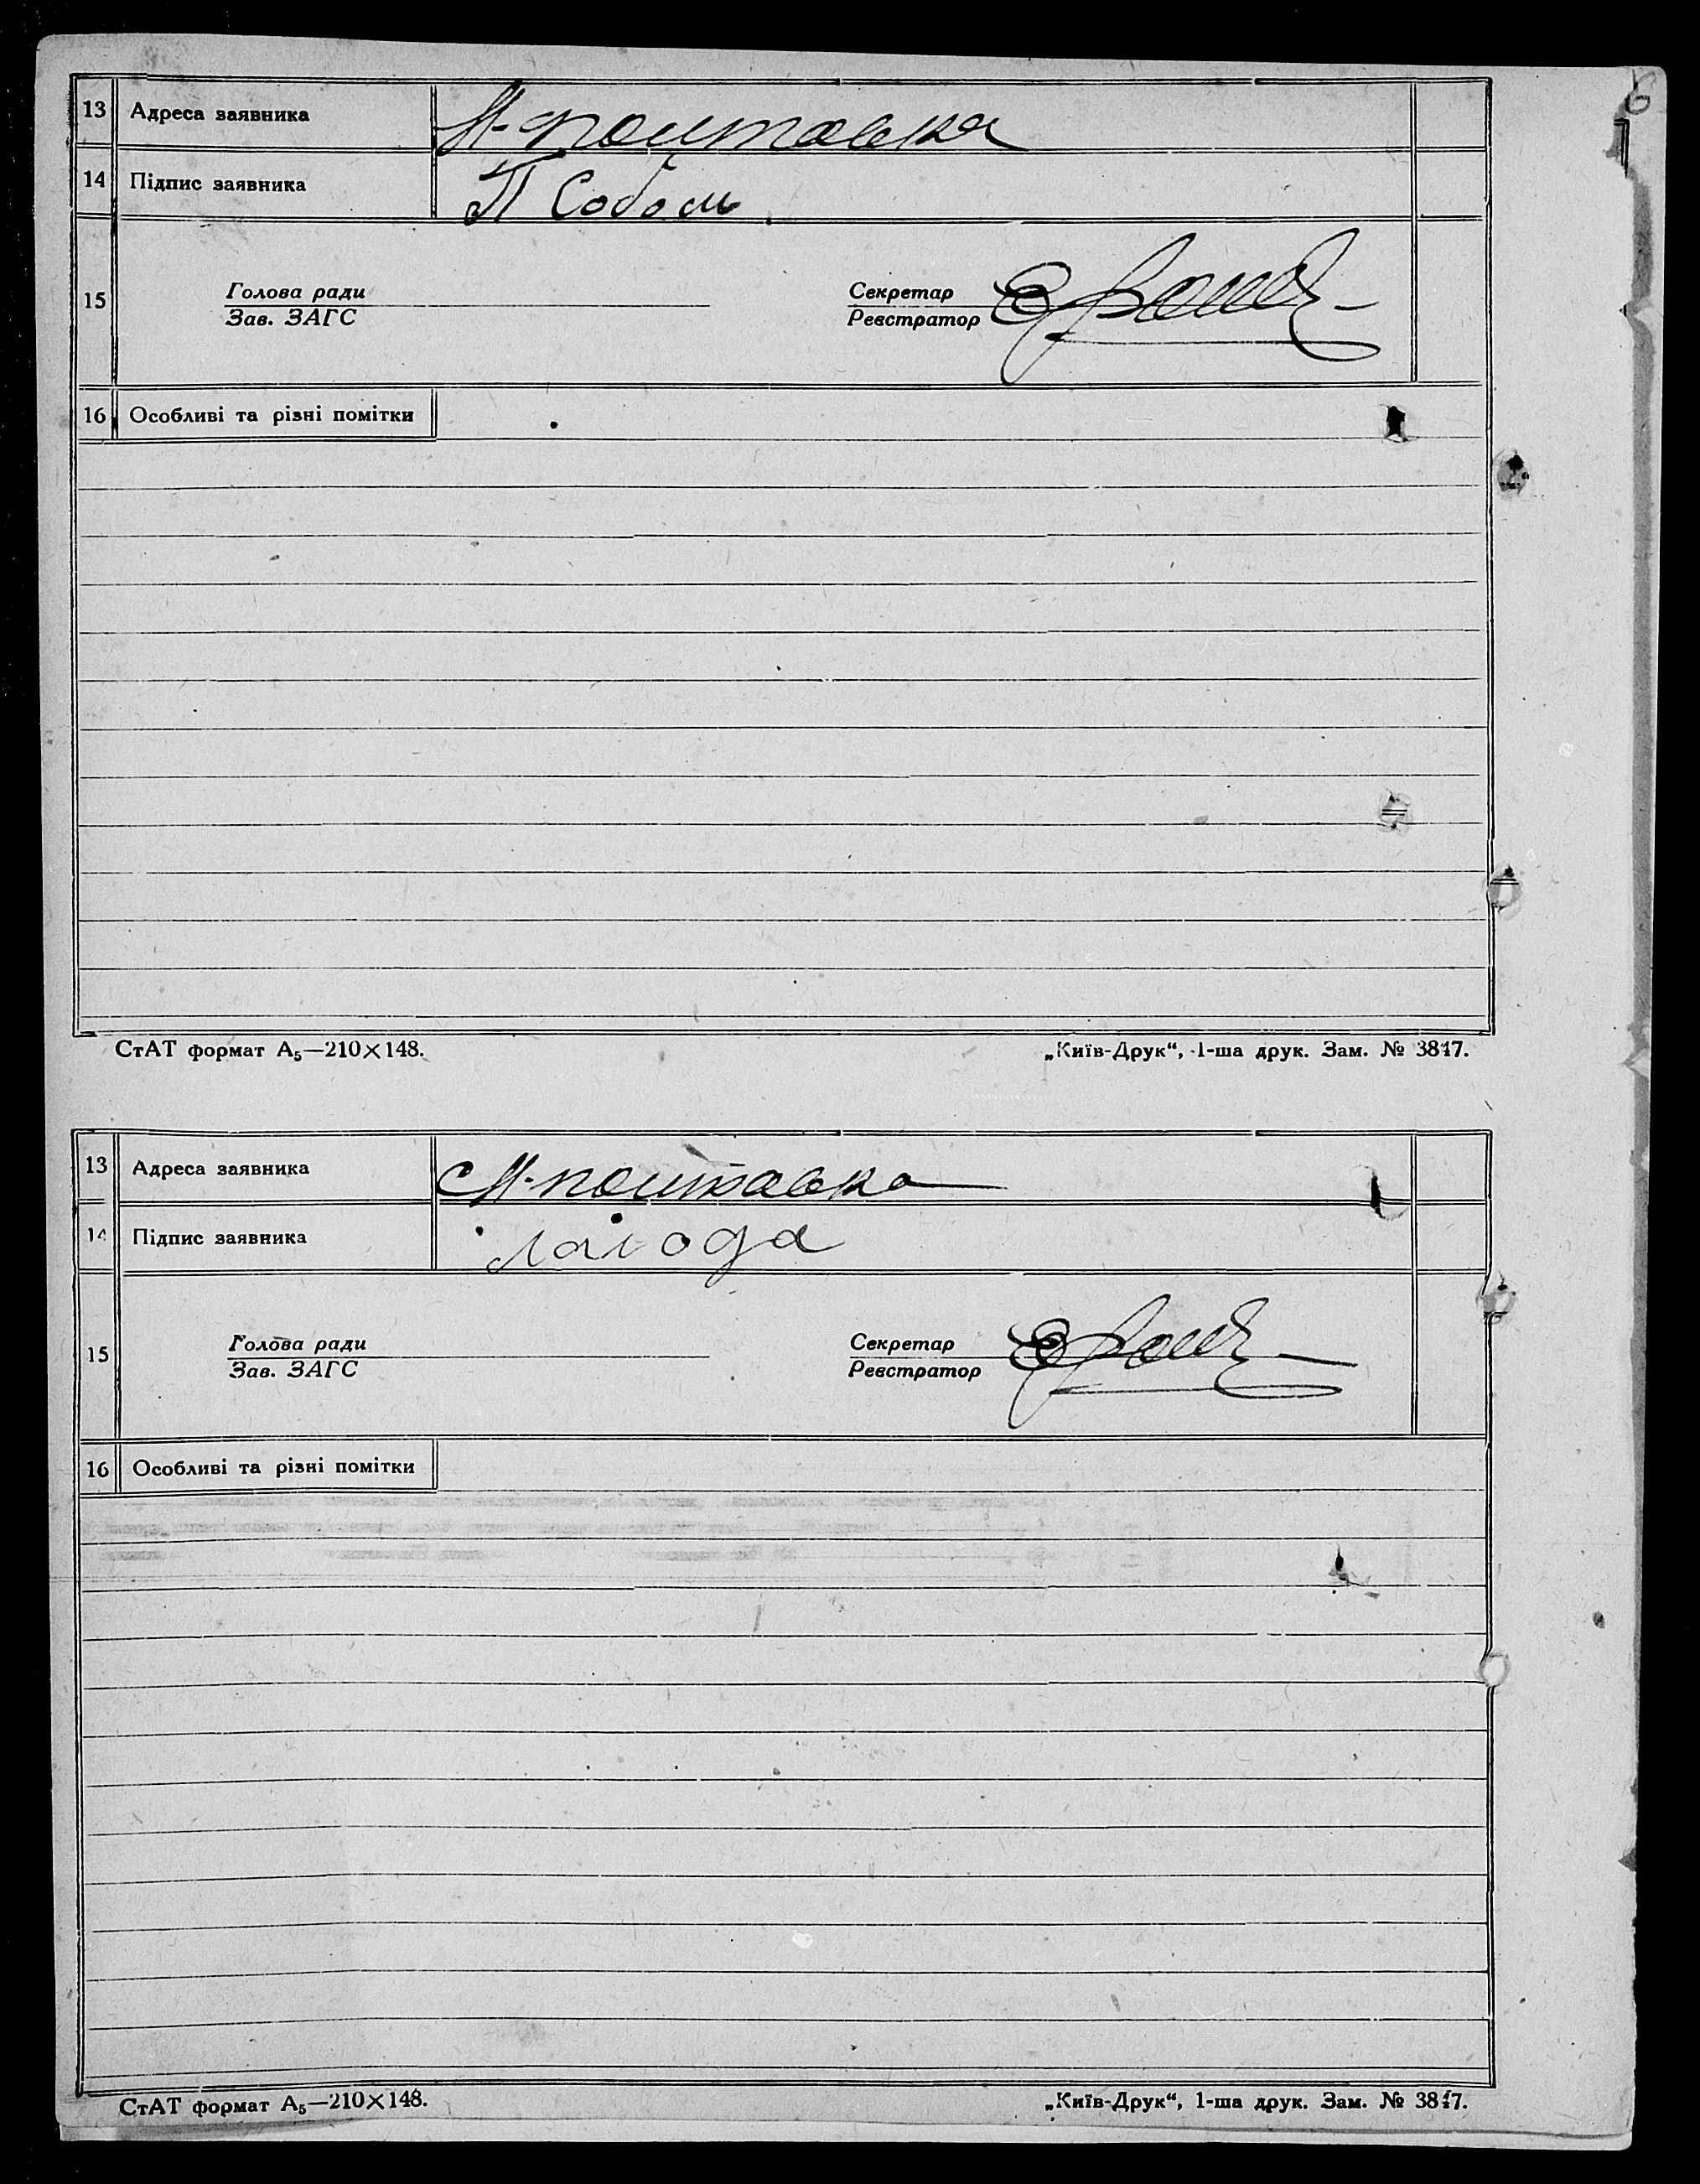 6
13 Адреса заявника М-Полтавка
14 Підпис заявника П Собол
15 Голова ради Секретар
Зав. ЗАГС Реєстратор
16 Особливі та різні помітки
СтАТ формат А₅—210×148. „Київ-Друк“, 1-ша друк. Зам. № 3847.
13 Адреса заявника с М-Полтавка
14 Підпис заявника
15 Голова ради Секретар
Зав. ЗАГС Реєстратор
16 Особливі та різні помітки
СтАТ формат А₅—210×148. „Київ-Друк“, 1-ша друк. Зам. № 3847.